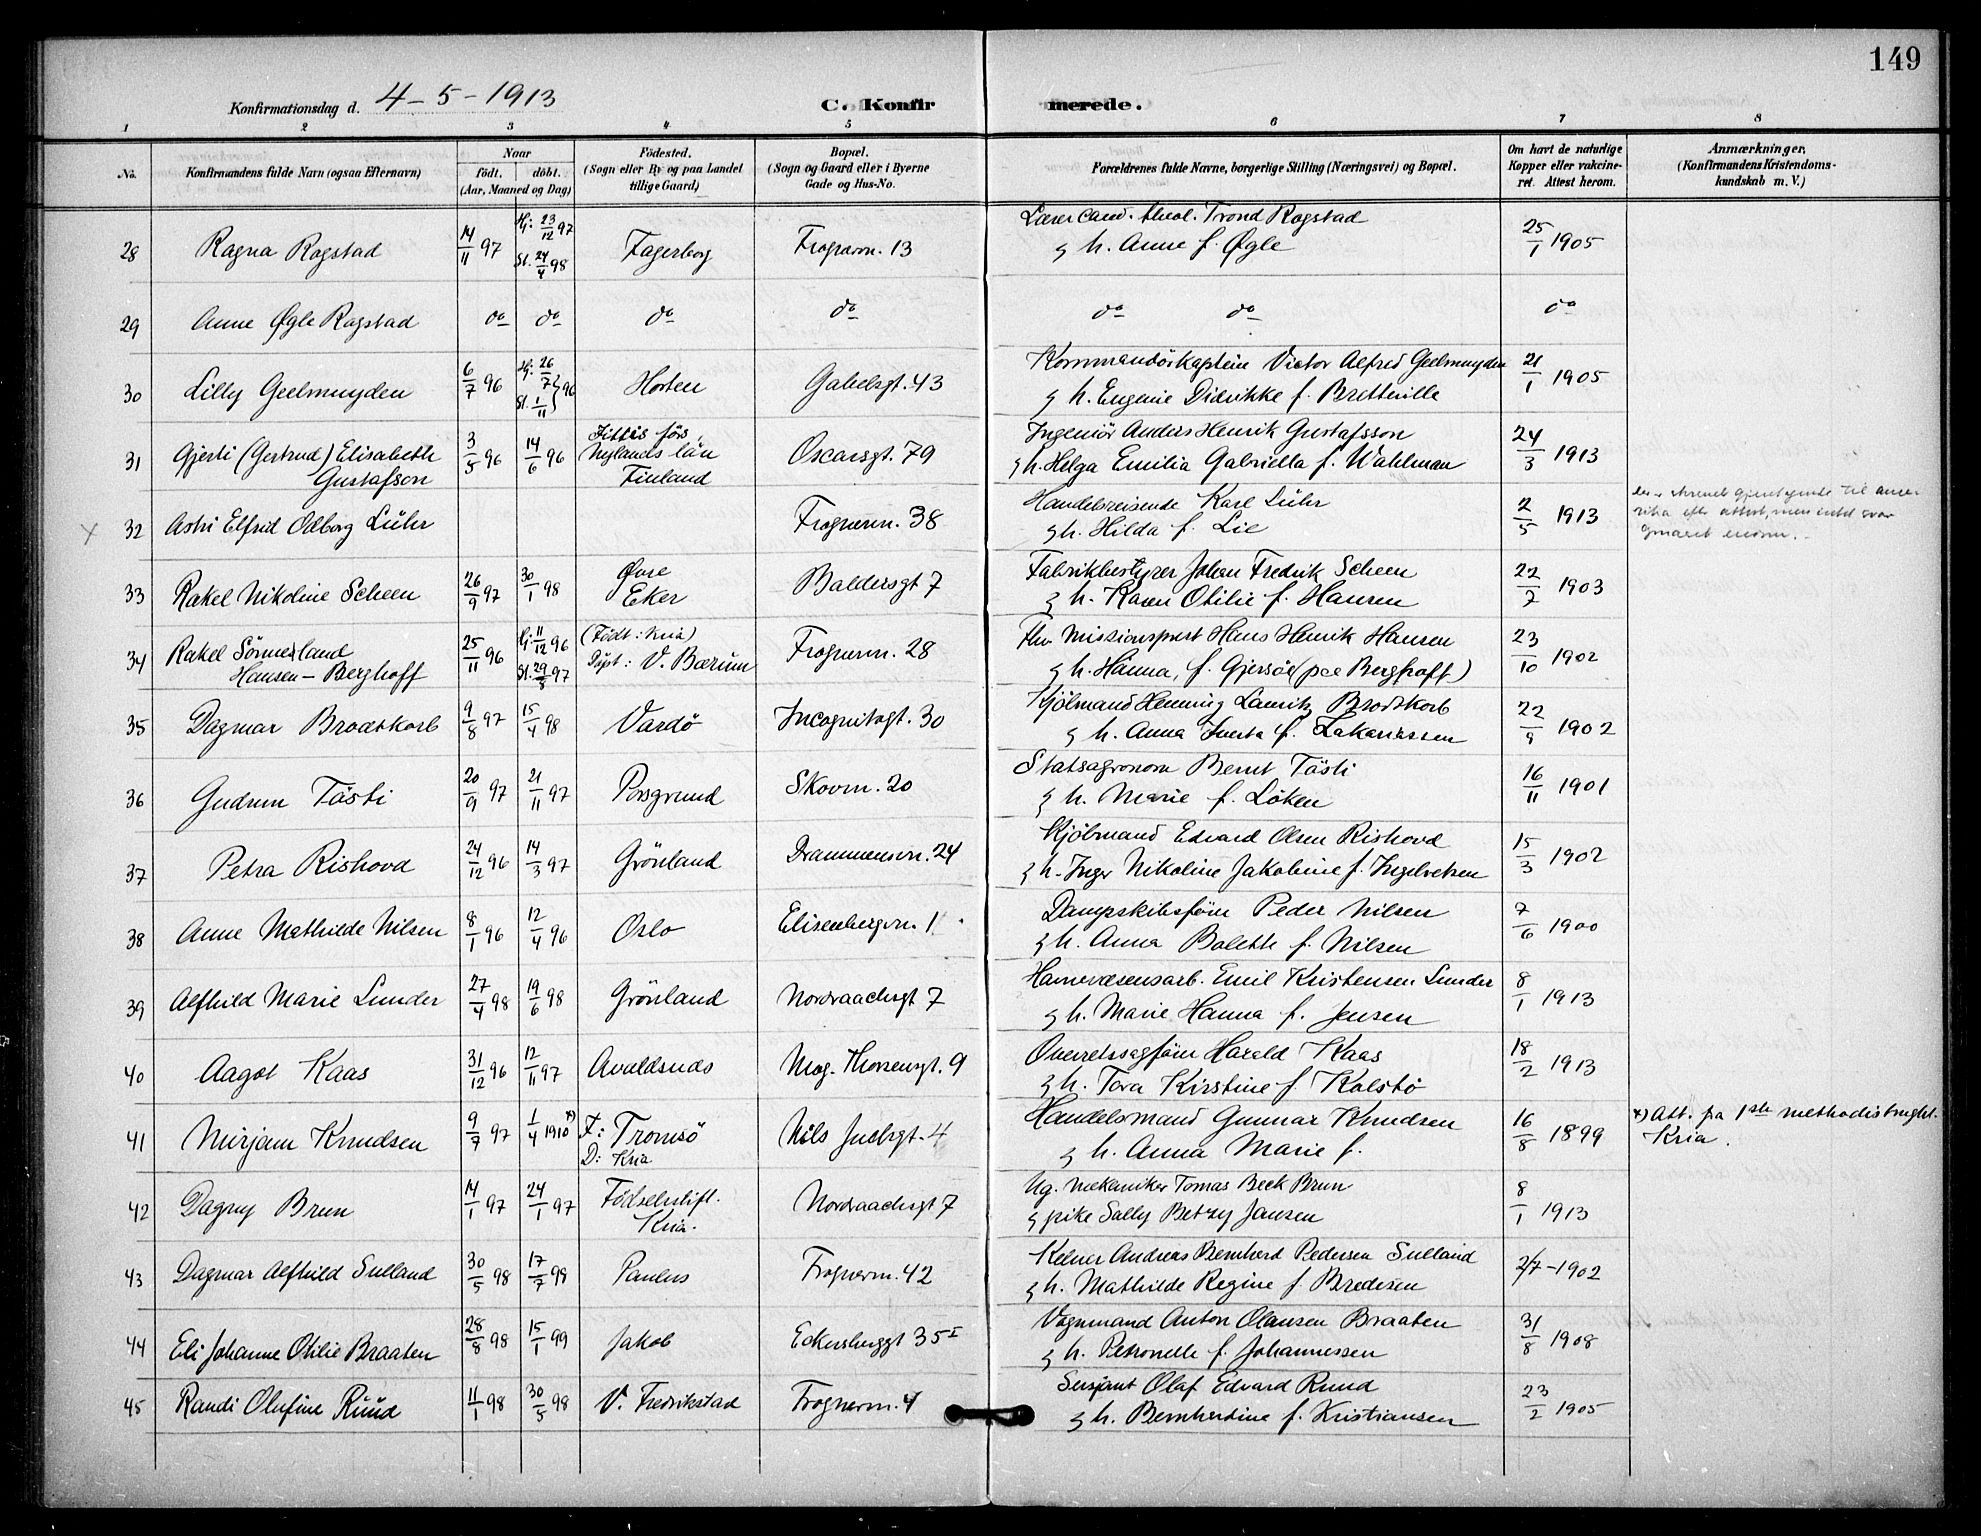 149
Konfirmationsdag d. 4-5-1913 C. Konfirmerede.
1 2 3 4 5 6 7 8
No. Konfirmandens fulde Navn (ogsaa Efternavn) Naar født. døbt. (Aar, Maaned og Dag) Födested. (Sogn eller By og paa Landet tillige Gaard) Bopæl. (Sogn og Gaard eller i Byerne Gade og Hus-No. Forældrenes fulde Navne, borgerlige Stilling (Næringsvei) og Bopæl. Om havt de naturlige Kopper eller vakcineret. Attest herom. Anmærkninger. (Konfirmandens Kristendomskundskab m. V.)
28 Ragna Rogstad 14/11 97 Hj: 23/12 97 St. 24/4 98 Fagerborg Frognervn. 13 Lærer Cand. theol. Trond Rogstad
& h. Anne f. Øgle 25/1 1905
29 Anne Øgle Rogstad do do do do do do do
30 Lilly Geelmuyden 6/7 96 Hj: 26/7 St. 1/11 } 96 Horten Gabelsgt. 43 Kommandörkaptein Victor Alfred Geelmuyden
& h. Eugenie Didrikke f. Bretteville 21/1 1905
31 Gjerti (Gertrud) Elisabeth
Gustafson 3/5 96 14/6 96 Nylands län
Finland Oscarsgt. 79 Ingeniör Anders Henrik Gustafsson
& h. Helga Emilia Gabriella f. Wahlman 24/3 1913
32 Astri Elfrid Odborg Lühr Frognervn. 38 Handelsreisende Karl Lühr
& h. Hilda f. Lie 2/5 1913 skrevet gjentagende til Amerika efter attest, men intet svar
33 Rakel Nikoline Scheen 26/9 97 30/1 98 Øvre
Eker Baldersgt 7 Fabrikbestyrer Johan Fredrik Scheen
& h. Karen Otilie f. Hansen 22/7 1903
34 Rakel Sörmerland
Hansen - Berghoff 25/11 96 Hj: 11/12 96 St. 29/8 97 (Födt: Kria)
Döpt: V. Bærum Frognervn. 28 Fhv Missionsprest Hans Henrik Hansen
& h. Hanna, f. Gjersöe (paa Berghoff) 23/10 1902
35 Dagmar Brodtkorb 9/8 97 15/4 98 Vardö Incognitogt. 30 Kjöbmand Henning Lauritz Brodtkorb
& h. Anna f. Zakariassen 22/9 1902
36 Gudrun Tästi 20/9 97 21/11 97 Porsgrund Skovvn. 20 Statsagronom Bernt Tästi
& h. Marie f. Löken 16/11 1901
37 Petra Rishovd 24/12 96 14/3 97 Grönland Drammensvn. 24 Kjöbmand Edvard Olsen Rishovd
& h. Inger Nikoline Jakobine f. Ingebretsen 15/3 1902
38 Anne Mathilde Nilsen 8/1 96 12/4 96 Oslo Elisenbergvn. 1 Dampskibsförer Peder Nilsen
& h. Anna Bolette f. Nilsen 7/6 1900
39 Alfhild Marie Lunder 27/4 98 19/6 98 Grönland Nordraachsgt 7 Havnevæsensarb. Emil Kristensen Lunder
& h. Marie Hanna f. Jensen 8/1 1913
40 Aagot Kaas 31/12 96 12/11 97 Avaldsnes Mog. Thorsensgt. 9 Overretssagförer Harald Kaas
& h. Tora Kirstine f. Kolstö 18/2 1913
41 Mirjam Knudsen 9/7 97 1/4 1910 x) F: Tromsö
D: Kria Nils Juelsgt. 4 Handelsmand Gunnar Knudsen
& h. Anna Marie f. 16/8 1899 x) Att. fra 1ste methodistmght.
Kria.
42 Dagny Brun 14/1 97 24/1 97 Födselsstift.
Kria. Nordraachsgt 7 Ug. mekaniker Tomas Beck Brun
& pike Sally Betzy Jansen 8/1 1913
43 Dagmar Alfhild Sulland 30/5 98 17/7 98 Paulus Frognervn. 42 Kelner Andreas Bernhard Pedersen Sulland
& h. Mathilde Regine f. Bredesen 2/7-1902
44 Eli Johanne Otilie Braaten 28/8 98 15/1 99 Jakob Eckersbergsgt 35 I Vognmand Anton Olausen Braaten
& h. Petronelle f. Johannessen 31/8 1908
45 Randi Olufine Ruud 11/1 98 30/5 98 V. Fredrikstad Frognervn. 4 Sersjant Olaf Edvard Ruud
& h. Bernhardine f. Kristiansen 23/2 1905